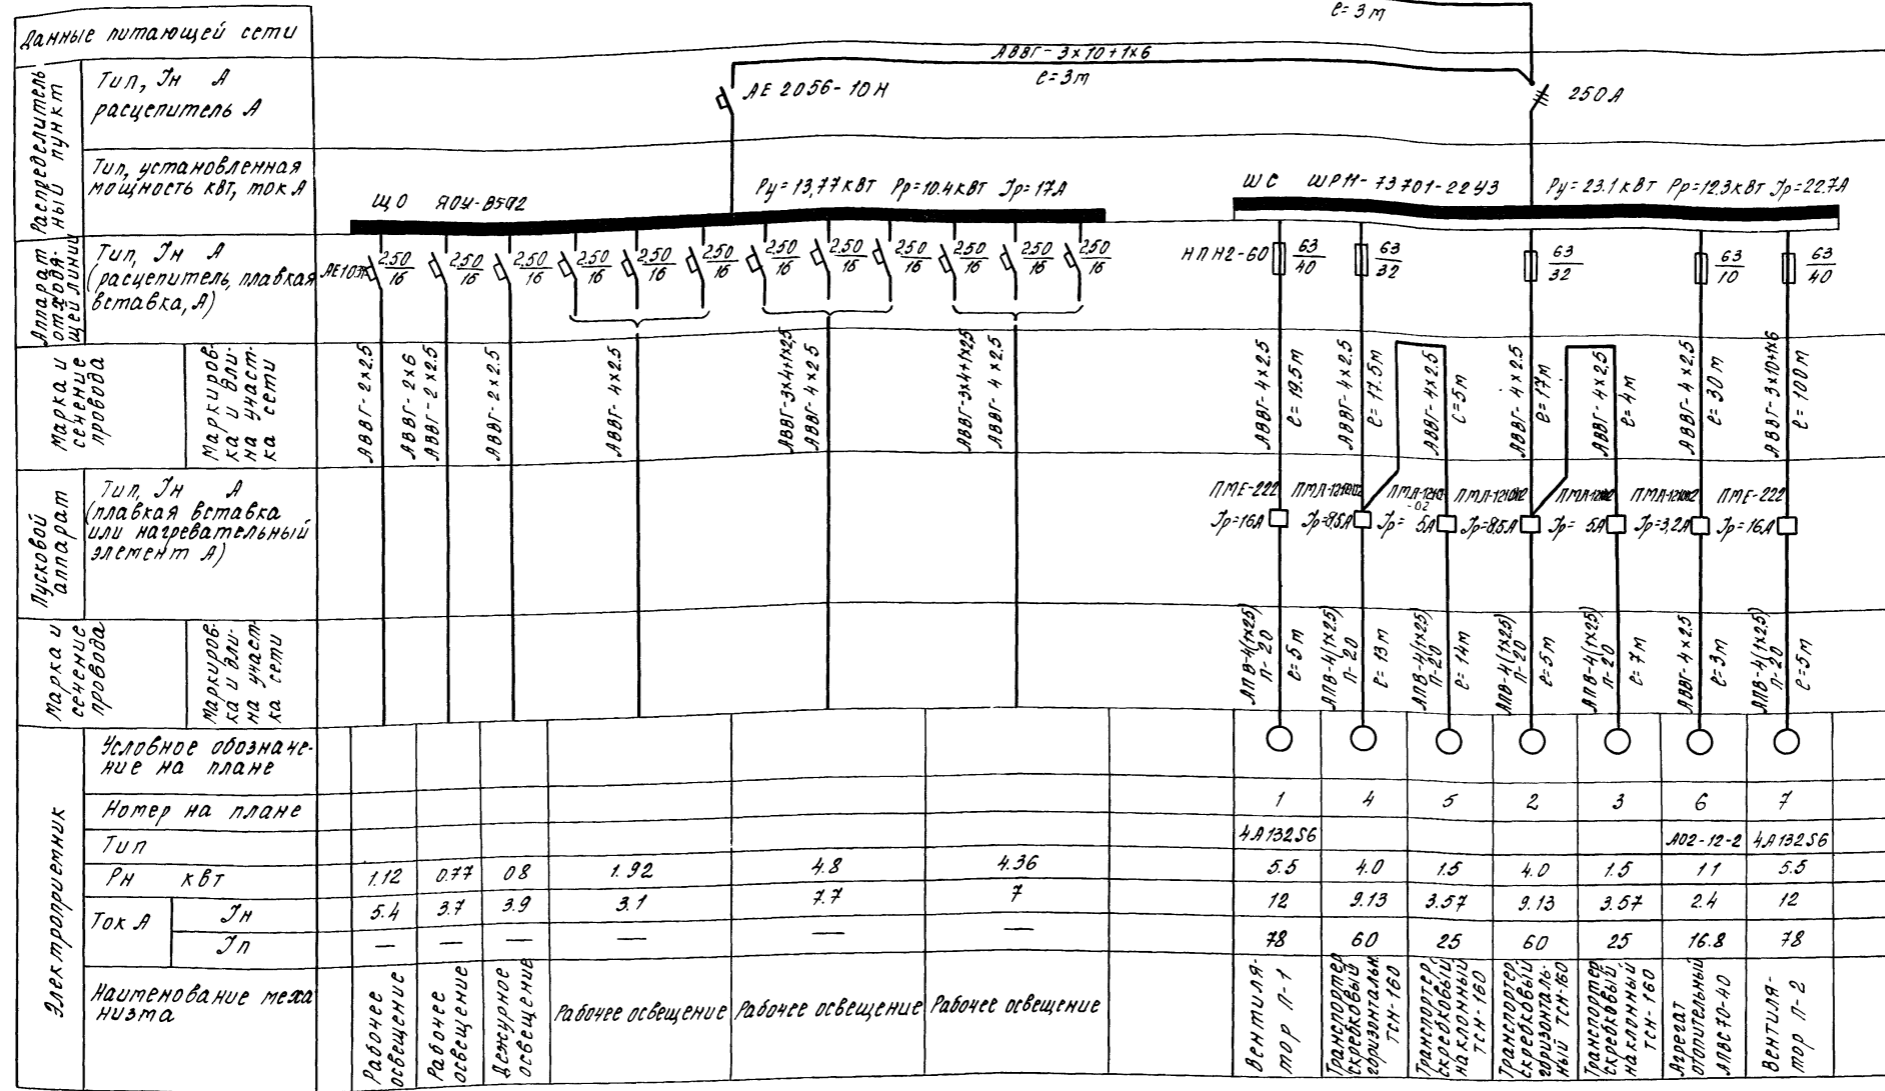 ℓ=3м
Данные питающей сети
АВВГ-3×10+1×6
ℓ=3м
Распределительный пункт
Тип, Iн А
расцепитель А
АЕ 2056-10Н
250А
Тип, установленная
мощность кВт, ток А
ЩО ЯОУ-8502 Ру=13,77кВт Рр=10.4кВт Iр=17А
ШС ШР11-73701-22У3 Ру=23.1кВт Рр=12.3кВт Iр=22.7А
Аппарат отходящей линии
Тип, Iн А
(расцепитель, плавкая
вставка, А)
2.50/16 2.50/16 2.50/16 2.50/16 2.50/16 2.50/16 2.50/16 2.50/16 2.50/16 2.50/16 2.50/16 2.50/16
НПН2-60 63/40 63/32 63/32 63/10 63/40
Марка и
сечение
провода
Маркиров-
ка и дли-
на участ-
ка сети
АВВГ-2×2.5
АВВГ-2×6
АВВГ-2×2.5
АВВГ-2×2.5
АВВГ-4×2.5
АВВГ-3×4+1×2,5
АВВГ-4×2.5
АВВГ-3×4+1×2,5
АВВГ-4×2.5
АВВГ-4×2.5
ℓ=19.5м
АВВГ-4×2.5
ℓ=17.5м
АВВГ-4×2.5
ℓ=5м
АВВГ-4×2.5
ℓ=17м
АВВГ-4×2.5
ℓ=4м
АВВГ-4×2.5
ℓ=30м
АВВГ-3×10+1×6
ℓ=100м
Пусковой
аппарат
Тип, Iн А
(плавкая вставка
или нагревательный
элемент А)
ПМЕ-222 ПМЕ-222
Iр=16А Iр=8,5А Iр= 5А Iр=8,5А Iр= 5А Iр=3,2А Iр=16А
Марка и
сечение
провода
Маркиров-
ка и дли-
на участ-
ка сети
АПВ-4(1×2.5)
п-20
ℓ=5м
АПВ-4(1×2.5)
п-20
ℓ=13м
АПВ-4(1×2.5)
п-20
ℓ=14м
АПВ-4(1×2.5)
п-20
ℓ=5м
АПВ-4(1×2.5)
п-20
ℓ=7м
АВВГ-4×2.5
ℓ=3м
АПВ-4(1×2.5)
п-20
ℓ=5м
Электроприемник
Условное обозначе-
ние на плане
Номер на плане 1 4 5 2 3 6 7
Тип 4А132S6 А02-12-2 4А132S6
Рн кВт 1.12 0.77 0.8 1.92 4.8 4.36 5.5 4.0 1.5 4.0 1.5 1.1 5.5
Ток А
Iн 5.4 3.7 3.9 3.1 7.7 7 12 9.13 3.57 9.13 3.57 2.4 12
Iп — — — — — — 78 60 25 60 25 16.8 78
Наименование меха
низма
Рабочее
освещение
Рабочее
освещение
Дежурное
освещение
Рабочее освещение
Рабочее освещение
Рабочее освещение
Вентиля-
тор П-1
Транспортер
скребковый
горизонтальн.
тсн-160
Транспортер
скребковый
наклонный
тсн-160
Транспортер
скребковый
горизонталь-
ный тсн-160
Транспортер
скребковый
наклонный
тсн-160
Агрегат
отопительный
АПВС70-40
Вентиля-
тор П-2